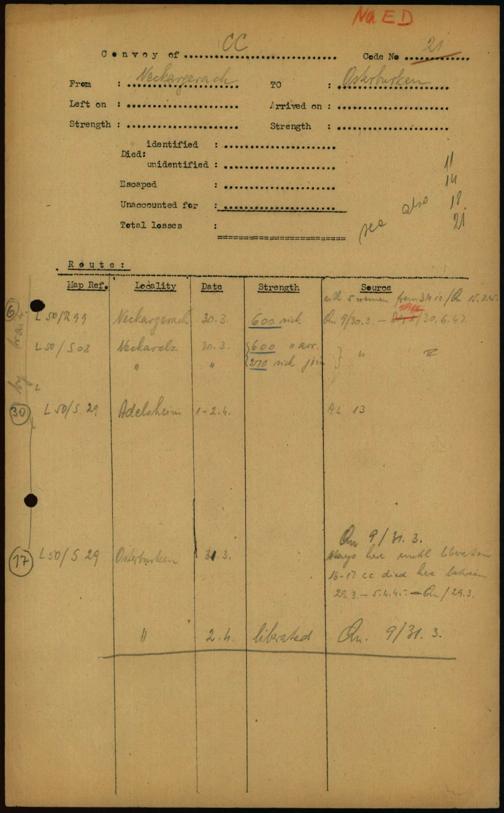 Na ED
Convoy of CC Code No 21
From : Neckargerach TO : Osterburken
Left on : Arrived on :
Strength : Strength :
identified :
Died:
unidentified :
Escaped :
Unaccounted for :
Total losses :
see also 11
14
18
21
Route:
Map Ref. Locality Date Strength Source
with 5 women from
6 L 50/R 99 Neckargerach 30.3. 600 sick Qu 9/30.3. – /20.6.47.
L 50/S 02 Neckarelz 30.3. 600 "
" " 270 sick join "
30 L 50/S 29 Adelsheim 1-2.4. AL 13
Qu 9/31.3.
17 L 50/S 29 Osterburken 31.3. stays here until liberation
16-17 cc died here between
29.3. – 5.4.45. – Qu/29.3.
" 2.4. liberated Qu. 9/31.3.